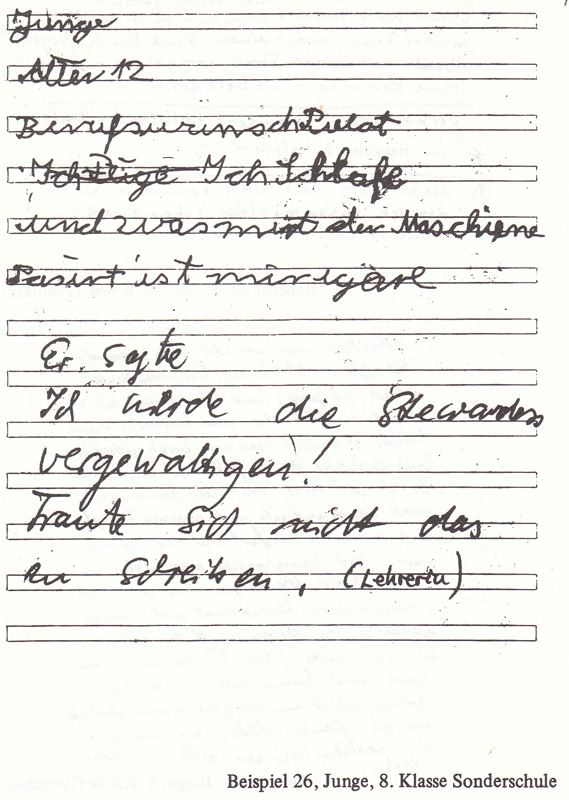 Junge
Alter 12
Berufswunsch Pielot
Ich fliige Ich Schlafe
und was mit der Maschiene
Pasirt ist mir igare
Er sagte
Ich würde die Stewardess
vergewaltigen!
Traute sich nicht das
zu schreiben. (Lehrerin)
Beispiel 26, Junge, 8. Klasse Sonderschule